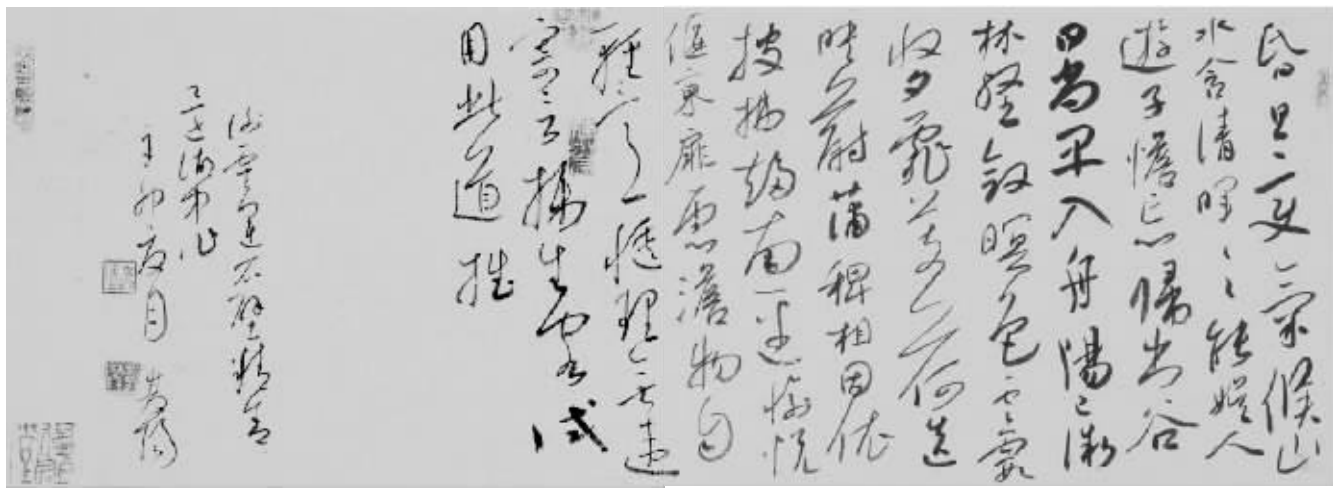 昏旦變氣候山
水含清暉々能娛人
遊子憺忘歸出谷
日尚早入舟陽已微
林壑斂暝色雲霞
收夕霏芰荷迭
映蔚蒲稗相因依
披拂趨南逕愉悅
偃東扉慮澹物自
輕意愜理無違
寄言攝生客試
用此道推
謝靈運石壁精舍
還湖中作
卯夏日